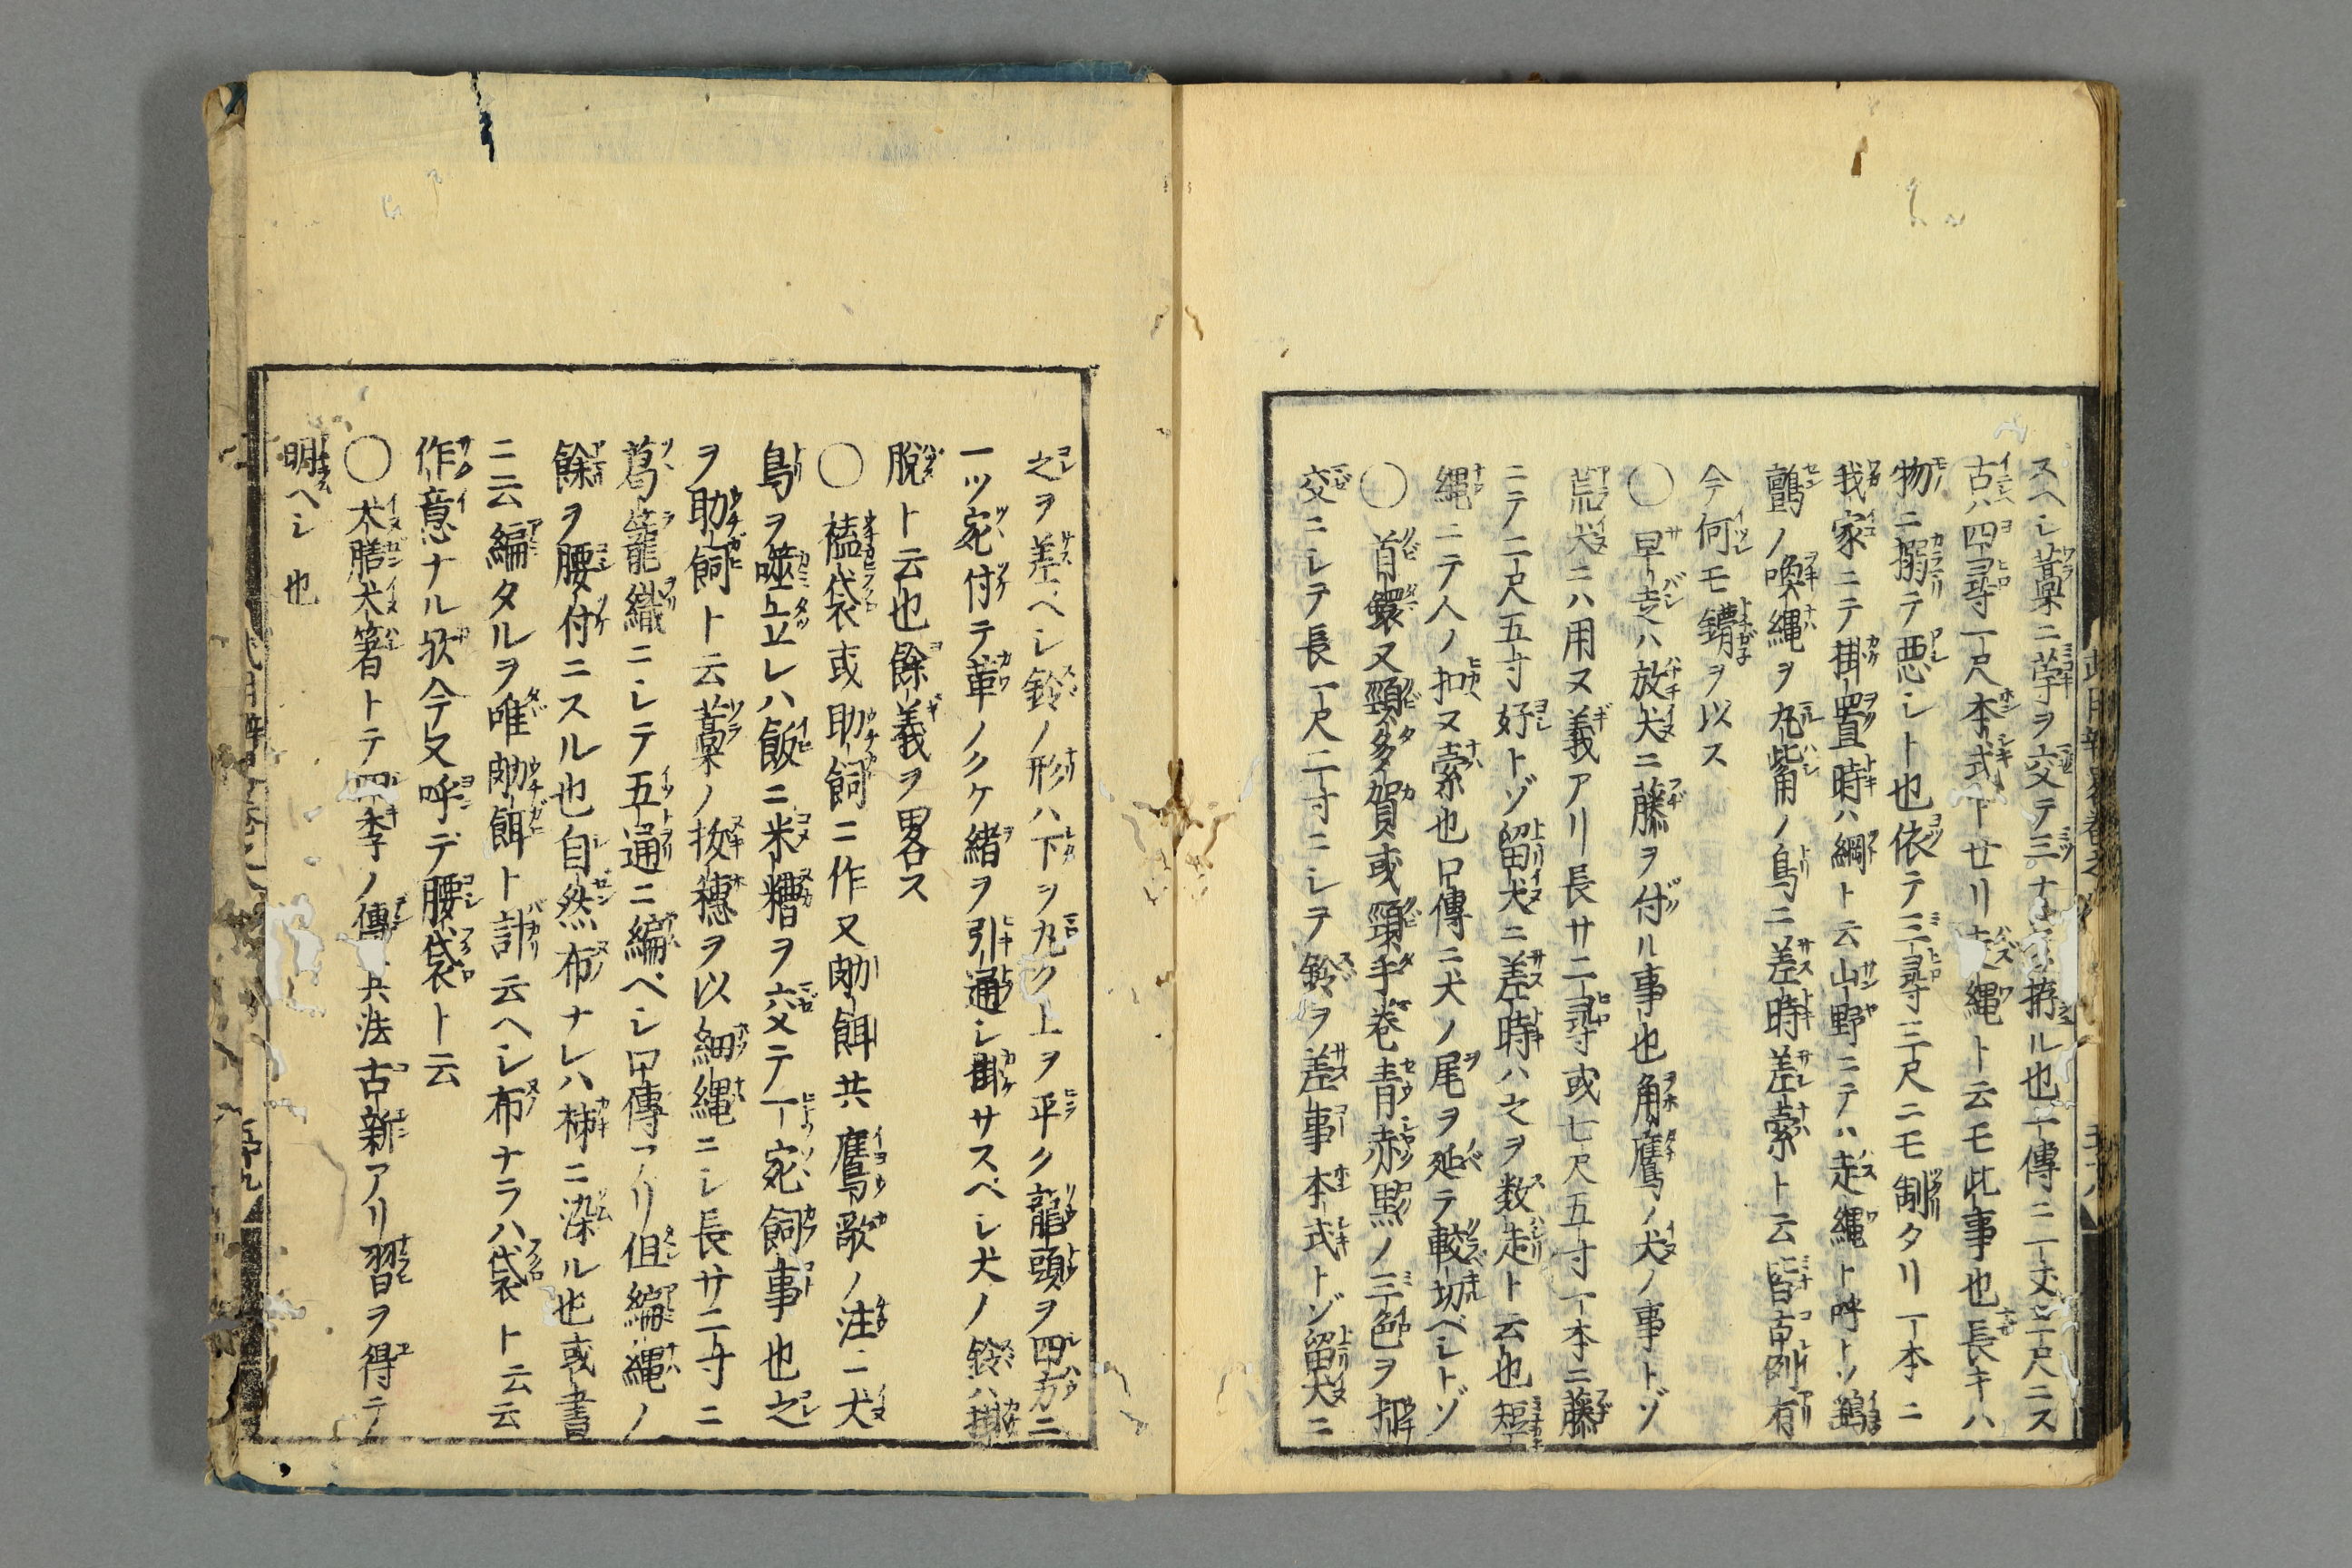 スヘシ藁ニ苧ヲ交テ三ナ拵ル也一傳ニ一丈三尺ニス
古ハ四尋一尺本式下廿リ縄ト云モ此事也長キハ
物ニ搦テ悪シト也依テ三尋三尺ニモ制タリ一本ニ
我家ニテ掛置時ハ綱ト云山野ニテハ走縄ト呼トソ鷂
鸇ノ喚縄ヲ丸觜ノ鳥ニ差時差索ト云皆古例有
今何モ鐟ヲ以ス
〇早走ハ放犬ニ藤ヲ付ル事也角鷹ノ犬ノ事トゾ
荒犬ニハ用ヌ義アリ長サ二尋或七尺五寸一本ニ藤
ニテ二尺五寸好トゾ留犬ニ差時ハ之ヲ数走ト云也短
縄ニテ人ノ扣ヌ索也口傳ニ犬ノ尾ヲ延テ較切ベシトゾ
〇首鐶又頸多賀或頸手巻青赤黒ノ三色ヲ
交ニシテ長一尺二寸ニシヲ鈴ヲ差事本式トゾ留犬ニ
之ヲ差ベシ鈴ノ形ハ下ヲ丸ク上ヲ平ク龍頭ヲ四方ニ
一ツ宛付テ革ノクケ緒ヲ引通シ掛サスベシ犬ノ鈴ハ掛
脱ト云也餘義ヲ畧ス
〇袋或助飼ニ作又餌共鷹歌ノ注ニ犬
鳥ヲ噬立レハ飯ニ米糟ヲ交テ一宛飼事也之
ヲ助飼ト云藁ノ抜穂ヲ以細縄ニシ長サ二寸ニ
葛籠織ニシテ五通ニ編ベシ口傳アリ但編縄ノ
餘ヲ腰付ニスル也自然布ナレハ柿ニ染ル也或書
ニ云編タルヲ唯餌ト計云ヘシ布ナラハ袋ト云云
作意ナル欤今又呼デ腰袋ト云
〇犬膳犬箸トテ四季ノ傳兵法古新アリ習ヲ得テ
明ヘシ也